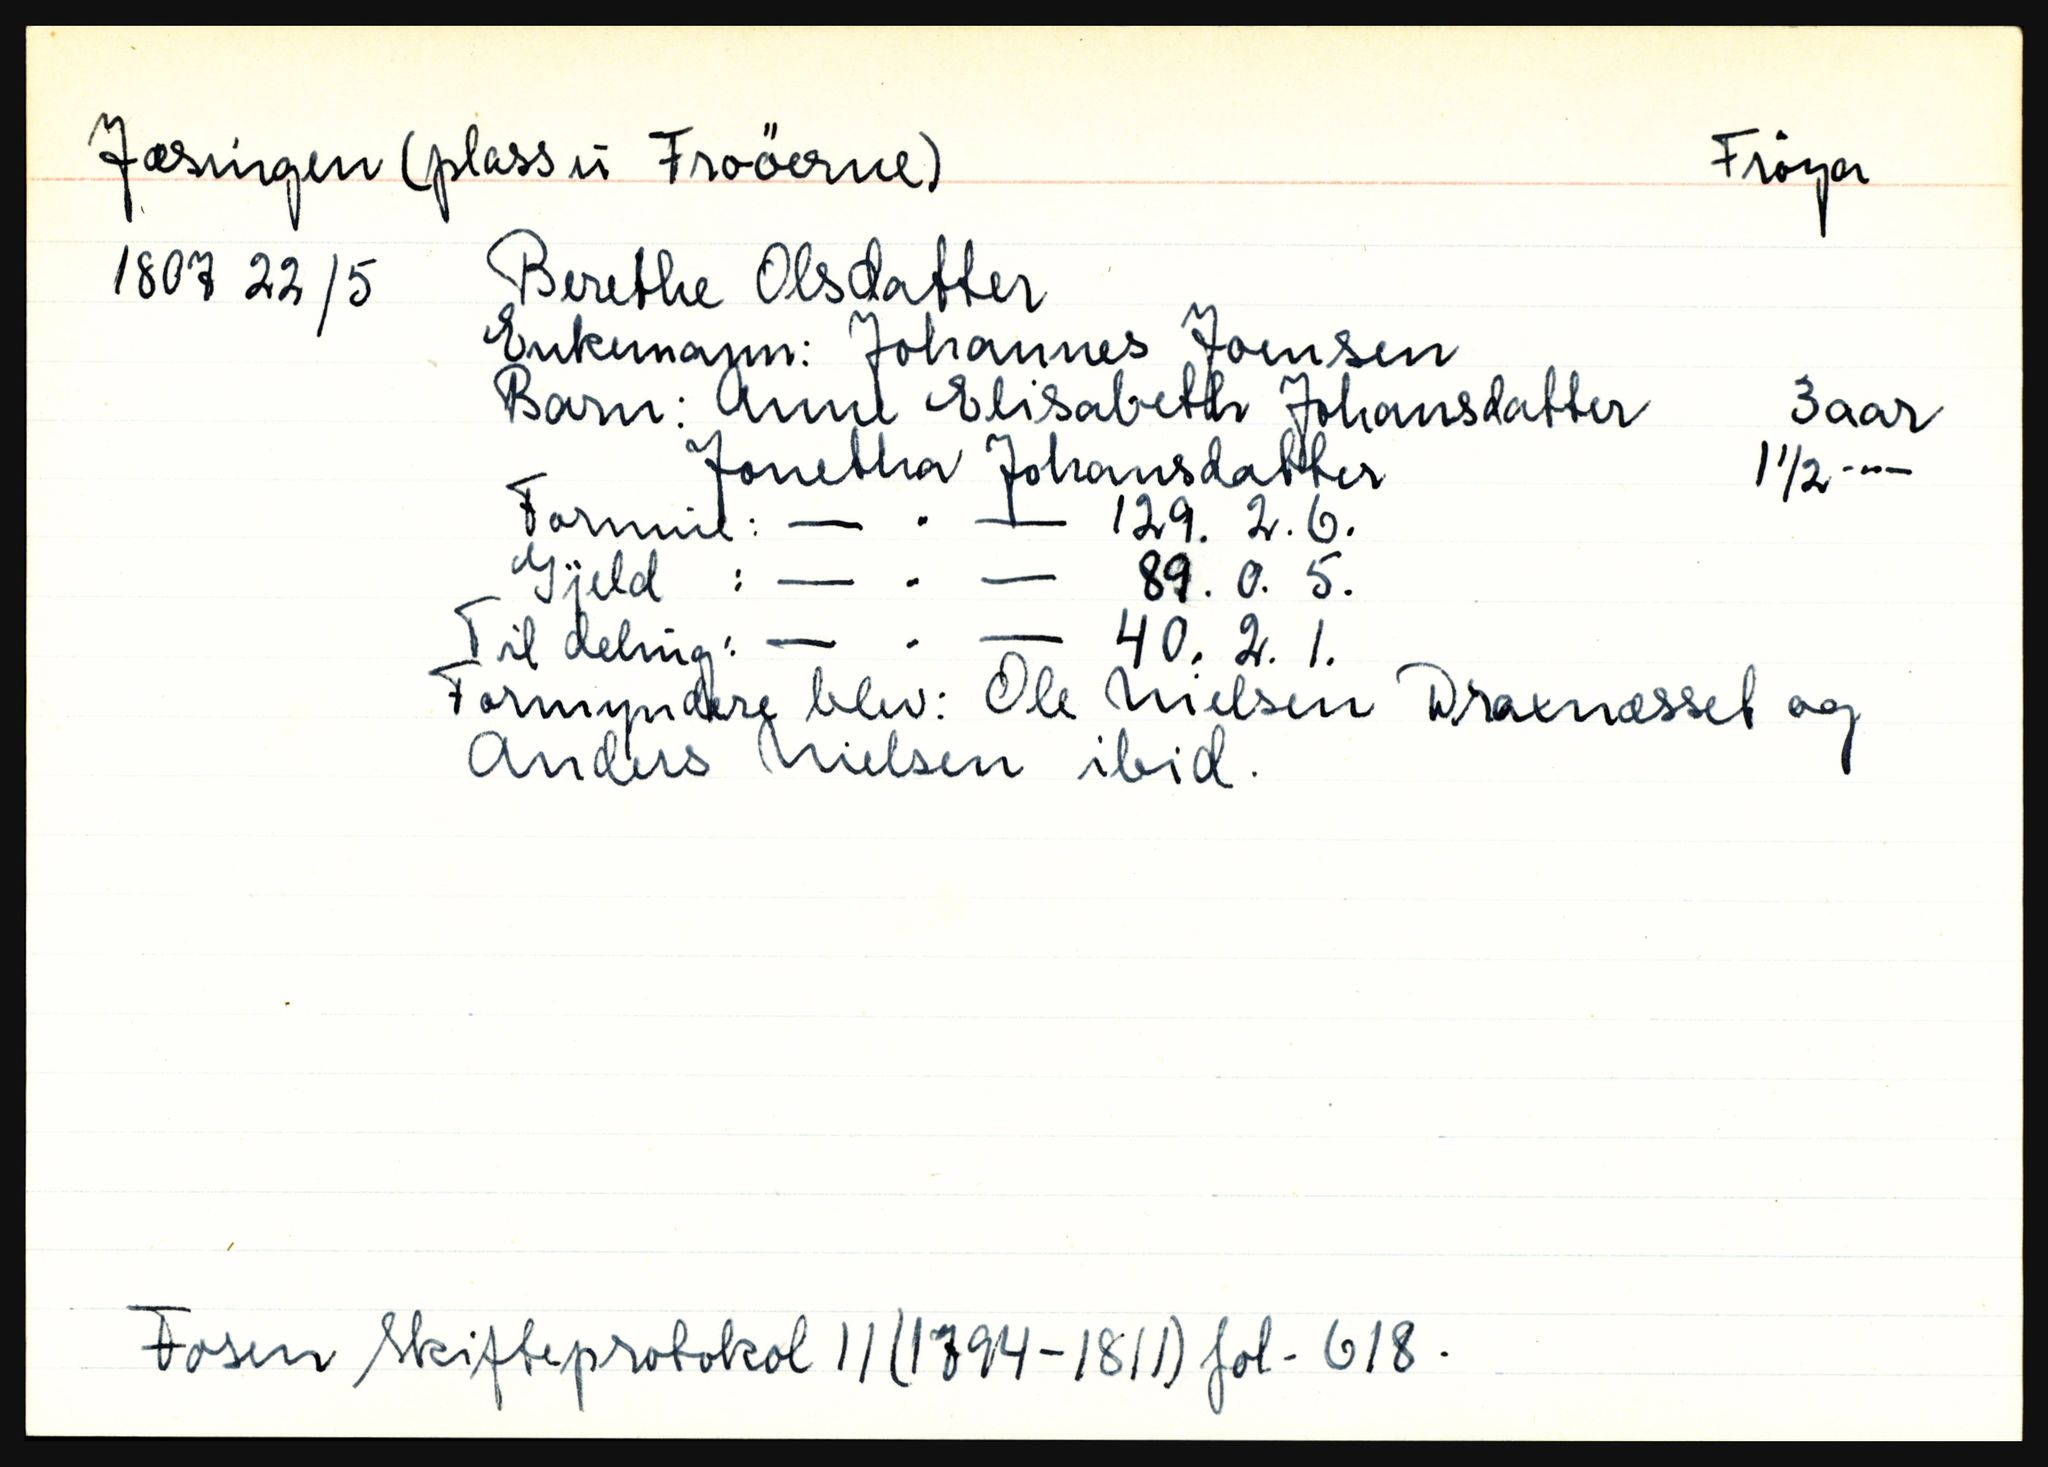 Jøsingen (plass u Froöerne) Fröya
1807 22/5 Berethe Olsdatter
Enkemann: Johannes Joensen
Barn: Anne Elisabeth Johansdatter 3 aar
Jonetha Johansdatter 1 1/2 -"-
Formue: — . — 129. 2. 6.
Gjeld : — . — 89. 0. 5.
Til deling: — . — 40. 2. 1.
Formyndere blev: Ole Nielsen Draxnæsset og
Anders Nielsen ibid.
Fosen Skifteprotokol 11 (1794-1811) fol - 618.